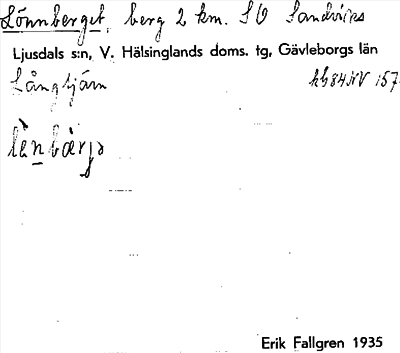 Lönnberget, berg 2 km. SO Sandvikens
Ljusdals s:n, V. Hälsinglands doms. tg, Gävleborgs län
Långtjärn hb 84 NV 157
lὲnbærjə
Erik Fallgren 1935